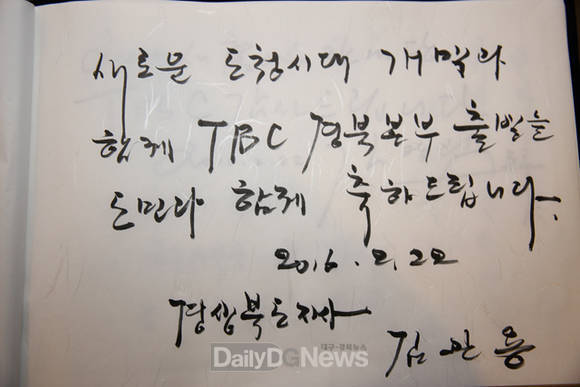 새로운 도청시대 개막과
함께 TBC 경북본부 출발을
도민과 함께 축하드립니다.
2016. 2. 22
경상북도지사
김관용
대구·경북뉴스
DailyDGNews